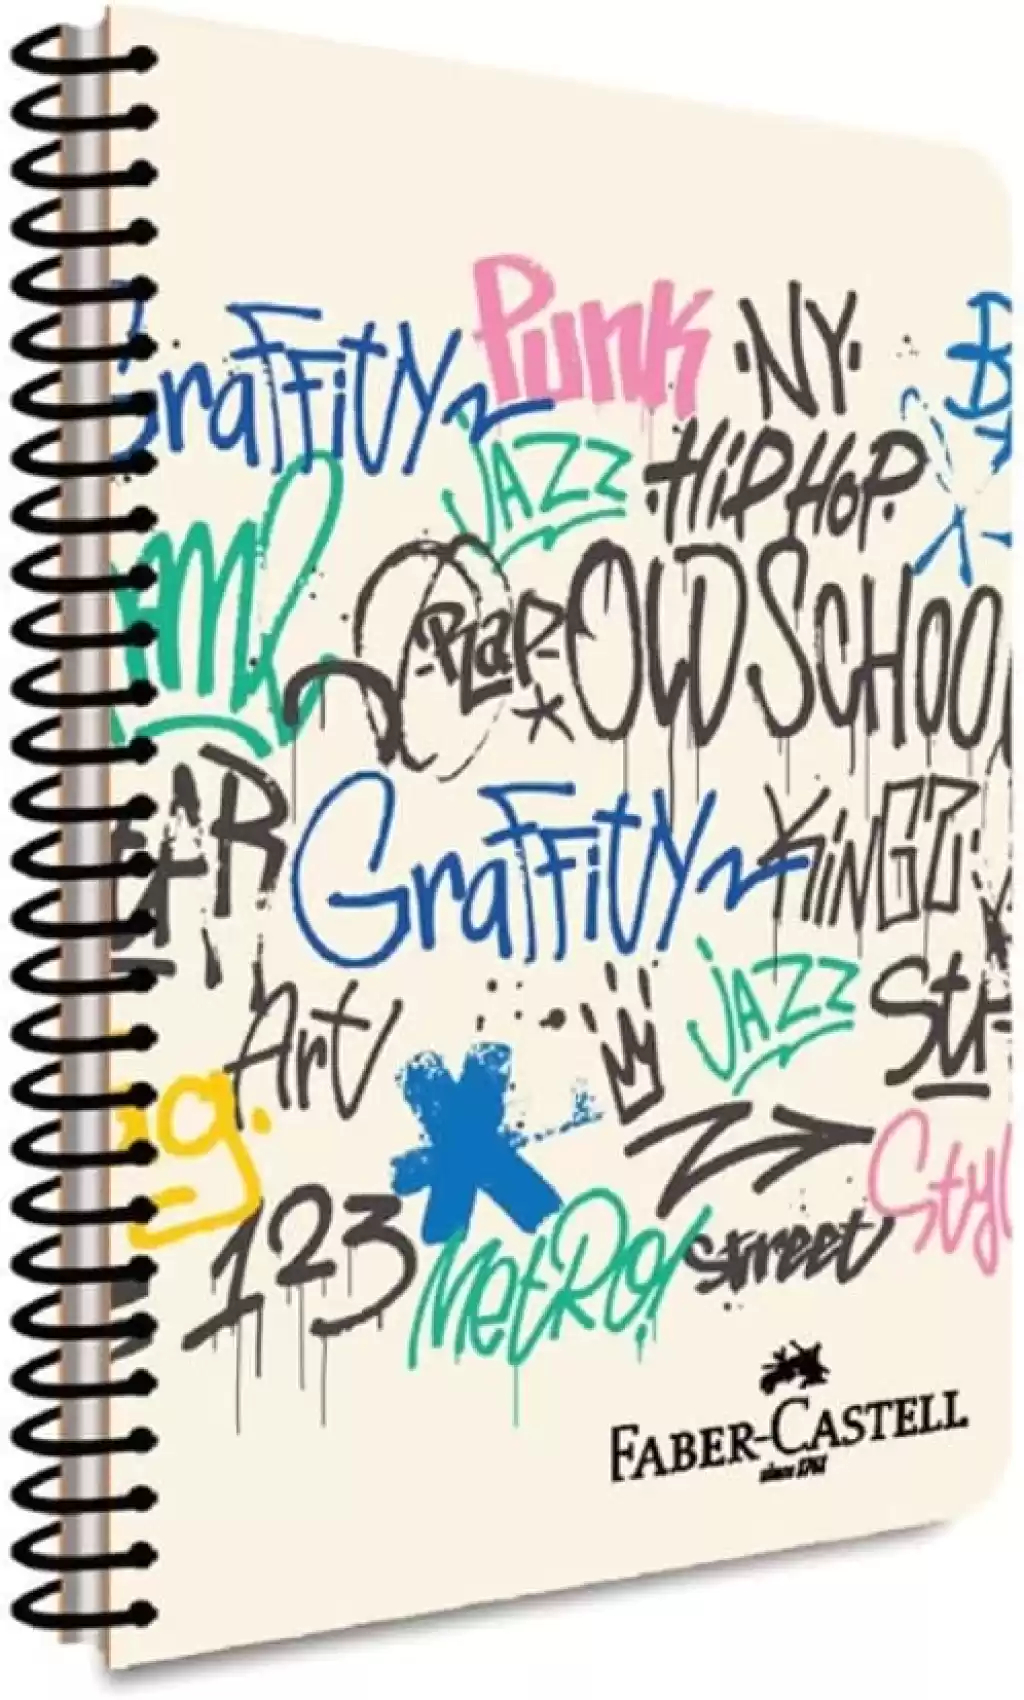 Graffity Punk NY
JAZZ HIPHOP
Rap OLD SCHOO
Graffity KINGZ
Art JAZZ Str
g. Styl
123 MetRO! street
FABER-CASTELL
since 1761